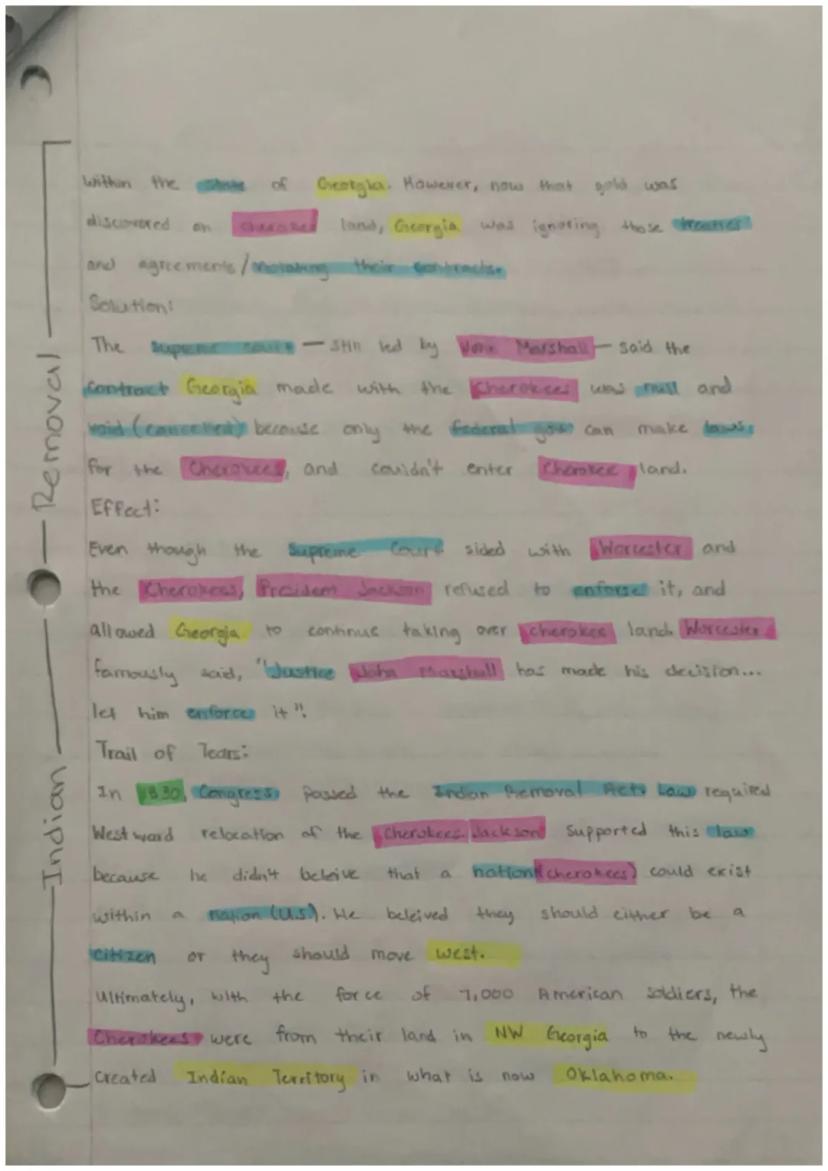 Within the state of Georgia. However, now that gold was
discovered on Cherokee land, Georgia was ignoring those treaties
and agreements/violating their contracts.
Solution:
The Supreme Court — still led by John Marshall — said the
contract Georgia made with the Cherokees was null and
void (cancelled) because only the federal gov can make laws
for the Cherokees, and couldn't enter Cherokee land.
Effect:
Even though the Supreme Court sided with Worcester and
the Cherokees, President Jackson refused to enforse it, and
allowed Georgia to continue taking over cherokee land. Worcester
famously said, "Justice John Marshall has made his decision...
let him enforce it".
Trail of Tears:
In 1830, Congress passed the Indian Removal Act. Law required
Westward relocation of the Cherokees. Jackson supported this law
because he didn't beleive that a nation (cherokees) could exist
within a nation (U.S). He beleived they should either be a
citizen or they should move west.
Ultimately, with the force of 7,000 American soldiers, the
Cherokees were from their land in NW Georgia to the newly
created Indian Territory in what is now Oklahoma.
Indian Removal